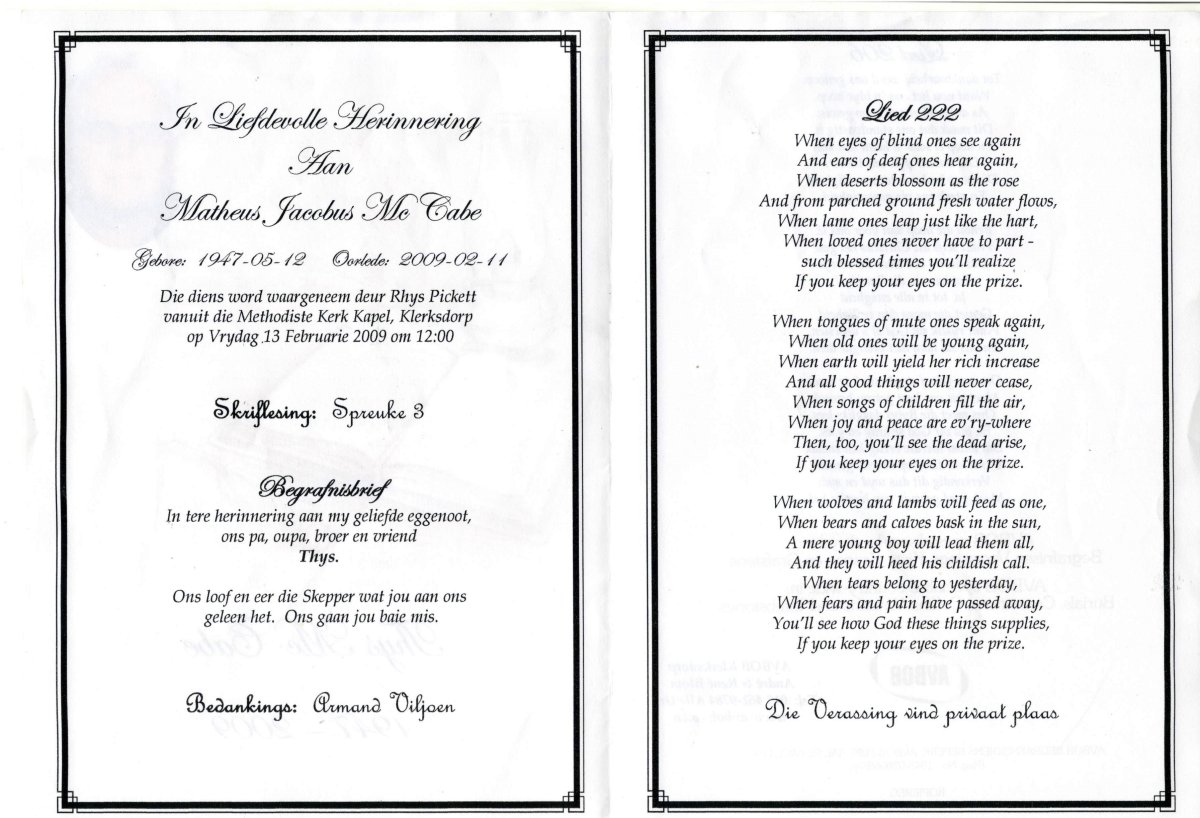 In Liefdevolle Herinnering
Aan
Matheus Jacobus Mc Cabe
Gebore: 1947-05-12 Oorlede: 2009-02-11
Die diens word waargeneem deur Rhys Pickett
vanuit die Methodiste Kerk Kapel, Klerksdorp
op Vrydag 13 Februarie 2009 om 12:00
Skriflesing: Spreuke 3
Begrafnisbrief
In tere herinnering aan my geliefde eggenoot,
ons pa, oupa, broer en vriend
Thys.
Ons loof en eer die Skepper wat jou aan ons
geleen het. Ons gaan jou baie mis.
Bedankings: Armand Viljoen
Lied 222
When eyes of blind ones see again
And ears of deaf ones hear again,
When deserts blossom as the rose
And from parched ground fresh water flows,
When lame ones leap just like the hart,
When loved ones never have to part -
such blessed times you'll realize
If you keep your eyes on the prize.
When tongues of mute ones speak again,
When old ones will be young again,
When earth will yield her rich increase
And all good things will never cease,
When songs of children fill the air,
When joy and peace are ev'ry-where
Then, too, you'll see the dead arise,
If you keep your eyes on the prize.
When wolves and lambs will feed as one,
When bears and calves bask in the sun,
A mere young boy will lead them all,
And they will heed his childish call.
When tears belong to yesterday,
When fears and pain have passed away,
You'll see how God these things supplies,
If you keep your eyes on the prize.
Die Verassing vind privaat plaas